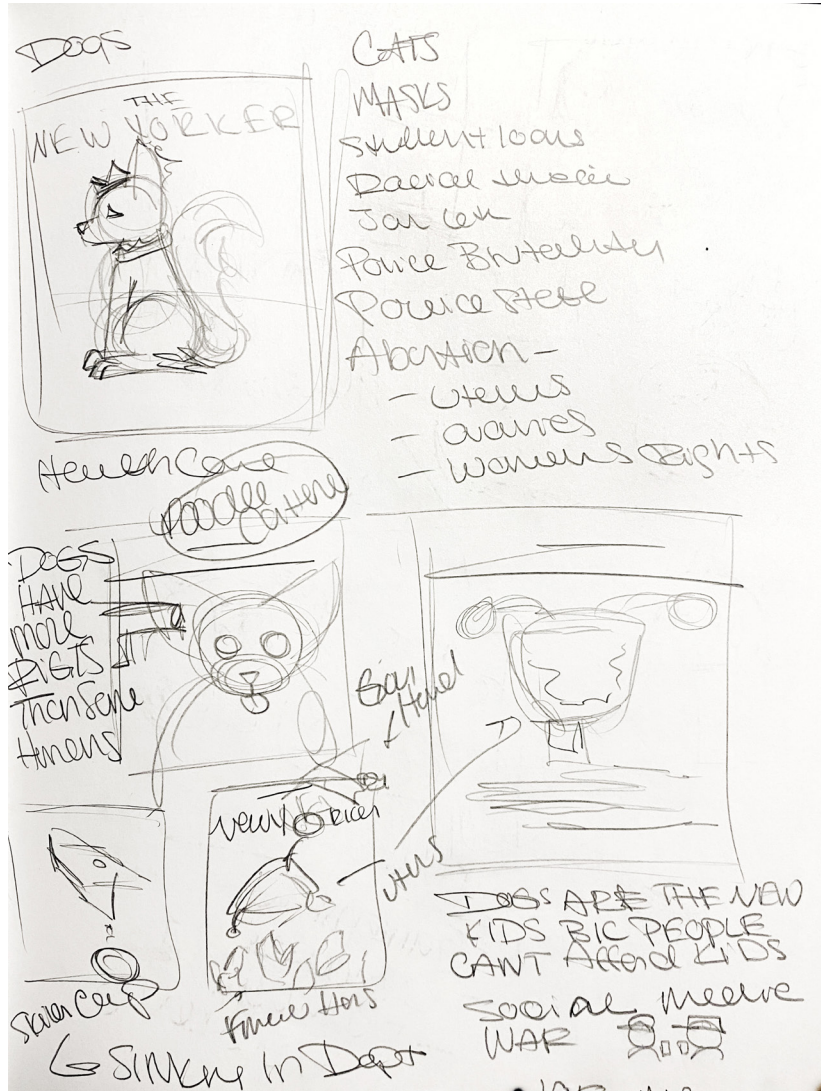 Dogs
THE
NEW YORKER
CATS
MASKS
Student loans
Racial
Police Brutality
Police State
Abortion -
- uterus
- ovaries
- womens Rights
Health Care
Poodle
DOGS
HAVE
more
RIGTS
Than Some
Humens
Hand
New Yorker
uterus
DOGS ARE THE NEW
KIDS B/C PEOPLE
CANT Afford KIDS
Social Media
WAR
Sinking In Dept